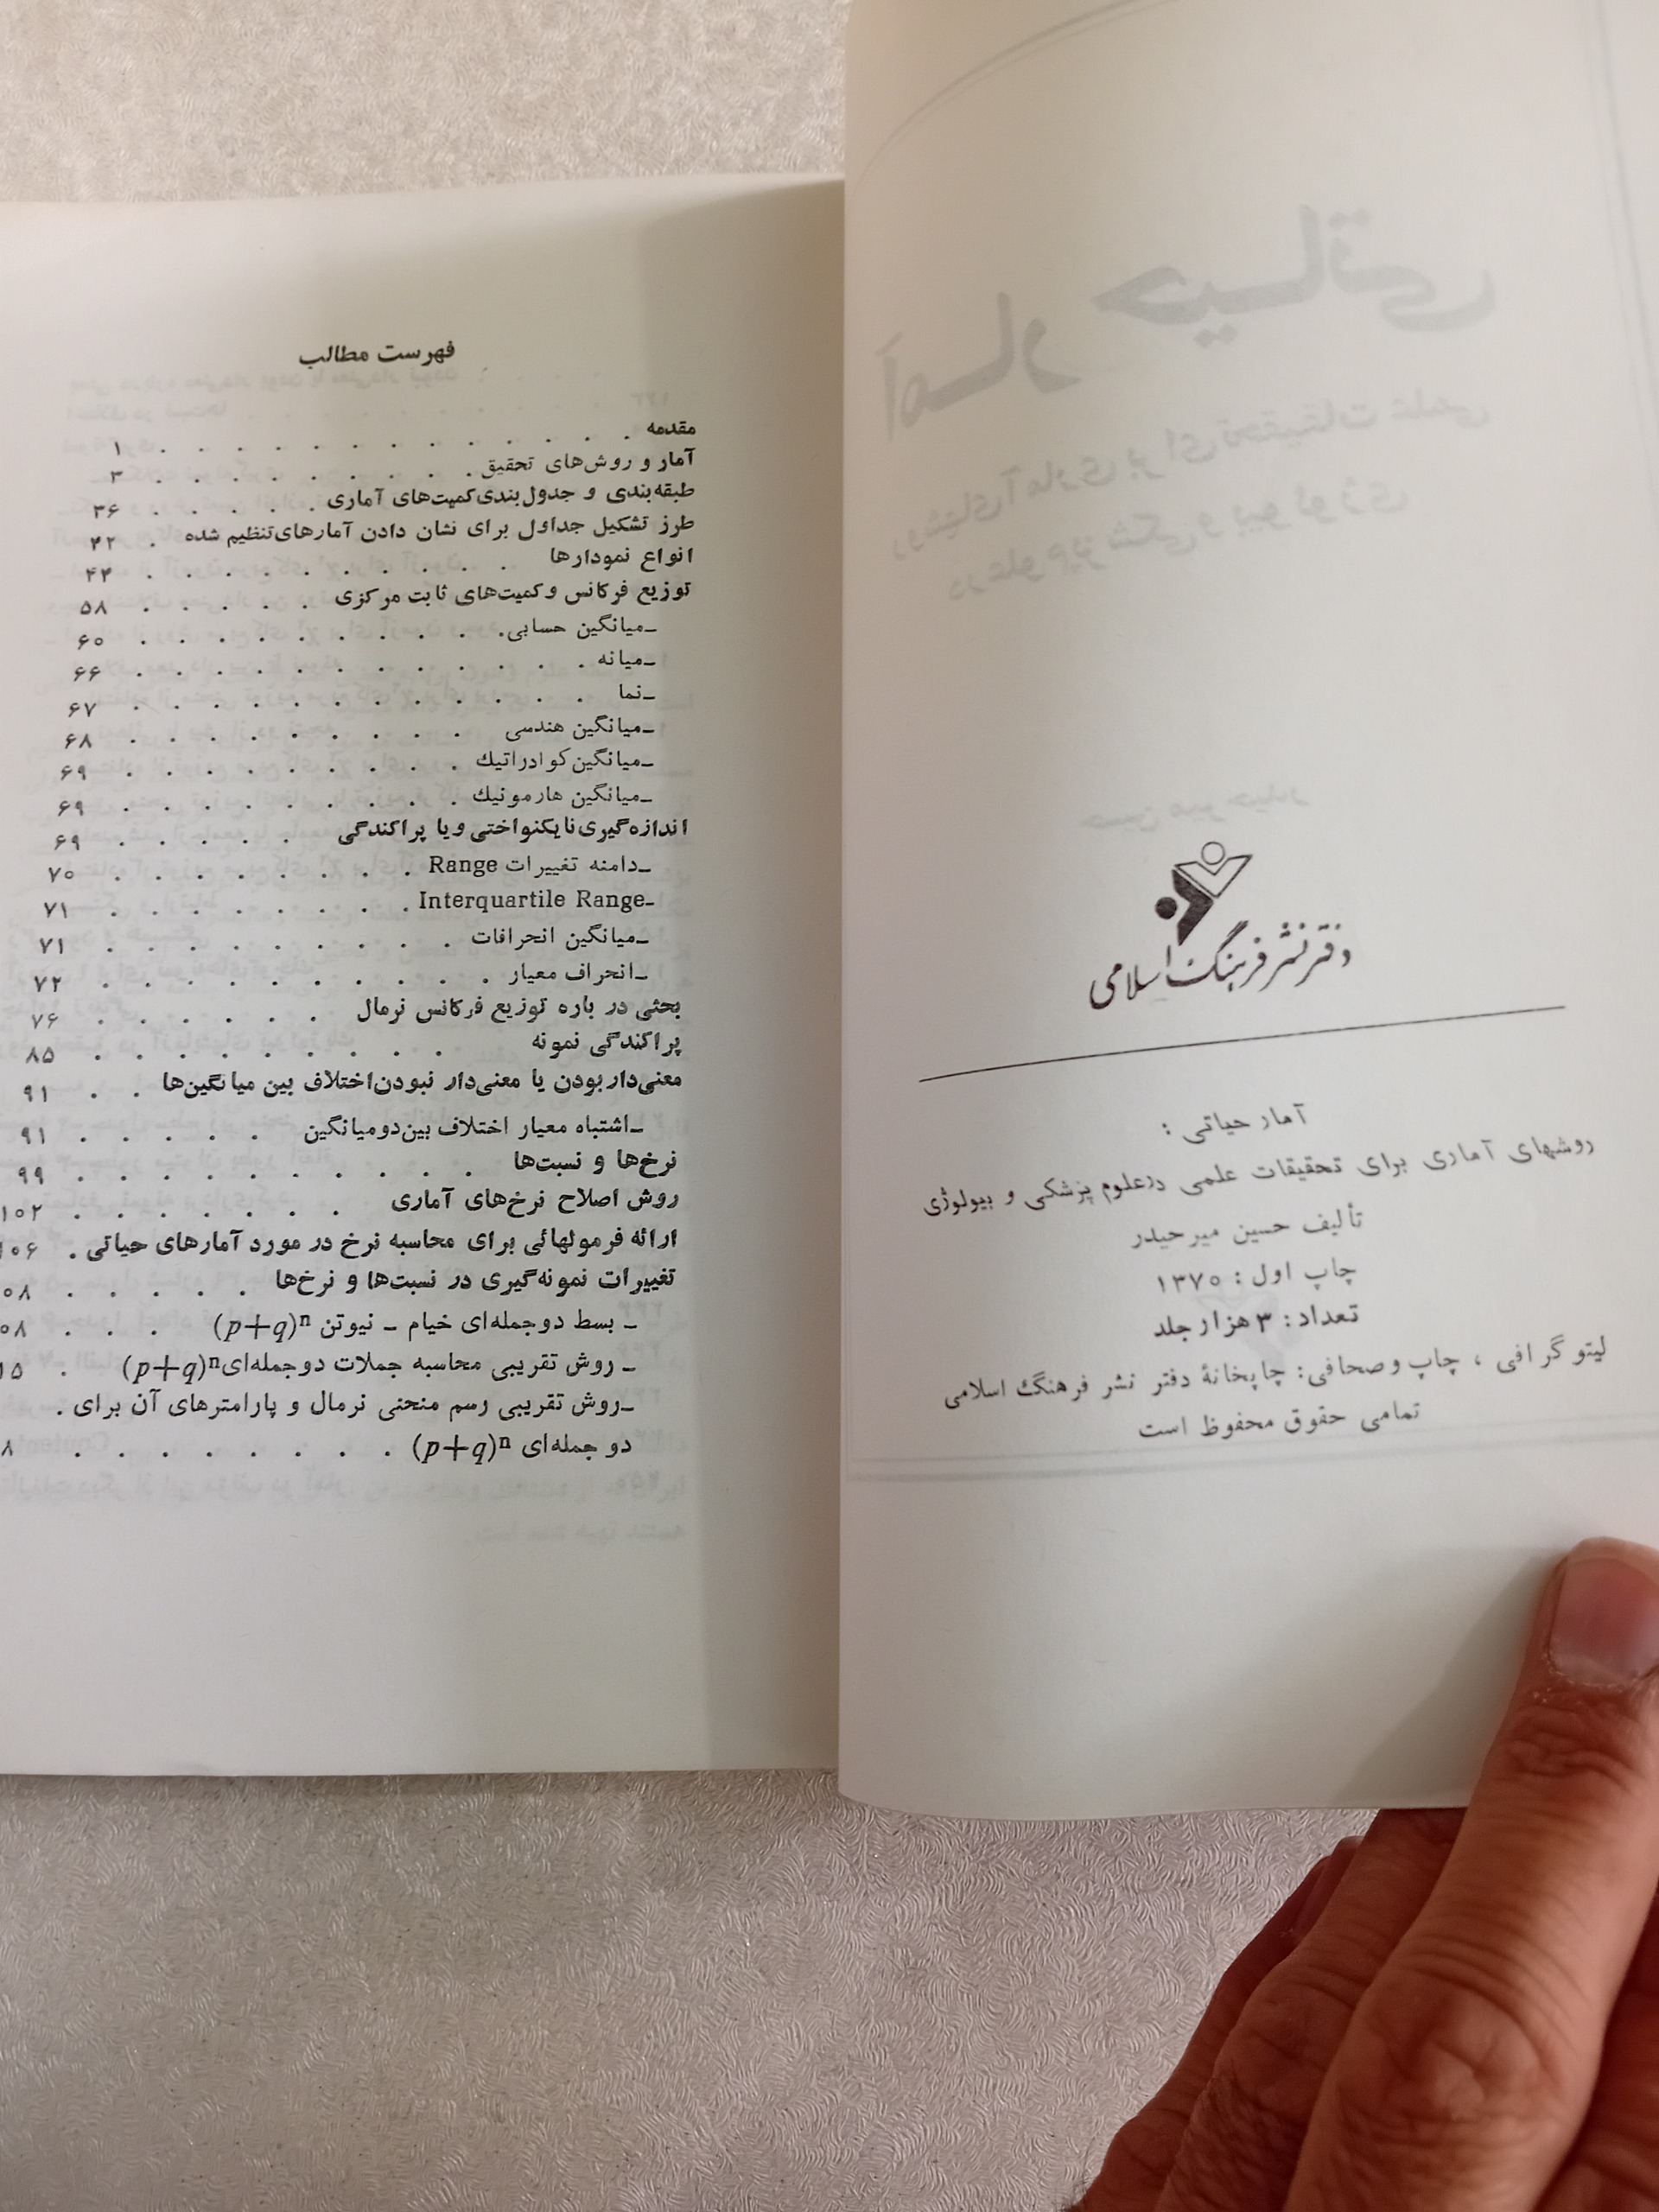 دفتر نشر فرهنگ اسلامی
آمار حیاتی :
روشهای آماری برای تحقیقات علمی در علوم پزشکی و بیولوژی
تألیف حسین میرحیدر
چاپ اول : ۱۳۷۰
تعداد : ۳ هزار جلد
لیتوگرافی ، چاپ و صحافی : چاپخانهٔ دفتر نشر فرهنگ اسلامی
تمامی حقوق محفوظ است
فهرست مطالب
مقدمه . . . . . . . . . . . . . ۱
آمار و روش‌های تحقیق . . . . . . . . . ۳
طبقه‌بندی و جدول‌بندی کمیت‌های آماری . . . . . ۳۶
طرز تشکیل جداول برای نشان دادن آمارهای تنظیم شده . ۴۲
انواع نمودارها . . . . . . . . . . ۴۴
توزیع فرکانس و کمیت‌های ثابت مرکزی . . . . . ۵۸
ـ میانگین حسابی . . . . . . . . . . ۶۰
ـ میانه . . . . . . . . . . . . ۶۶
ـ نما . . . . . . . . . . . . ۶۷
ـ میانگین هندسی . . . . . . . . . . ۶۸
ـ میانگین کوادراتیك . . . . . . . . . ۶۹
ـ میانگین هارمونیك . . . . . . . . . ۶۹
اندازه‌گیری نایکنواختی و یا پراکندگی . . . . . ۶۹
ـ دامنه تغییرات Range . . . . . . . . ۷۰
ـ Interquartile Range . . . . . . . . ۷۱
ـ میانگین انحرافات . . . . . . . . . ۷۱
ـ انحراف معیار . . . . . . . . . . ۷۲
بحثی در باره توزیع فرکانس نرمال . . . . . . ۷۶
پراکندگی نمونه . . . . . . . . . ۸۵
معنی‌دار بودن یا معنی‌دار نبودن اختلاف بین میانگین‌ها . . ۹۱
ـ اشتباه معیار اختلاف بین دو میانگین . . . . . ۹۱
نرخ‌ها و نسبت‌ها . . . . . . . . . . ۹۹
روش اصلاح نرخ‌های آماری . . . . . . . ۱۰۲
ارائه فرمولهائی برای محاسبه نرخ در مورد آمارهای حیاتی . ۱۰۶
تغییرات نمونه‌گیری در نسبت‌ها و نرخ‌ها . . . . . ۰۸
ـ بسط دوجمله‌ای خیام ـ نیوتن (p+q)ⁿ . . . ۰۸
ـ روش تقریبی محاسبه جملات دوجمله‌ای (p+q)ⁿ . ۱۵
ـ روش تقریبی رسم منحنی نرمال و پارامترهای آن برای .
دو جمله‌ای (p+q)ⁿ . . . . . . . . ۸